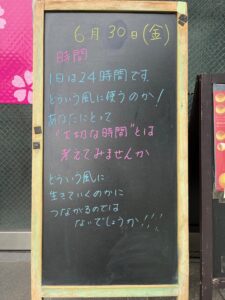 6月30日(金)
時間
1日は24時間です。
どういう風に使うのか!
あなたにとって
"大切な時間"とは
考えてみませんか
どういう風に
生きていくのかに
つながるのでは
ないでしょうか!!!